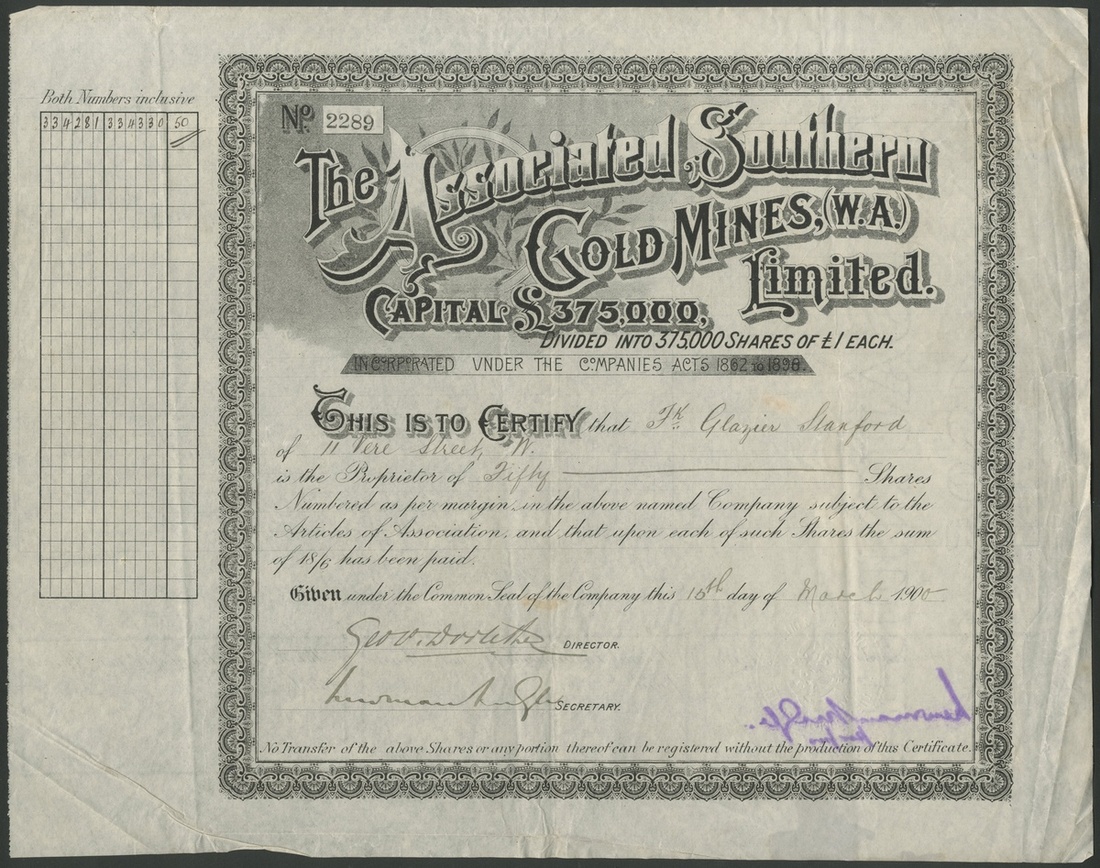 Both Numbers inclusive
334281 334330 50
No. 2289
The Associated Southern
Gold Mines, (W.A.)
Limited.
Capital £375,000,
Divided into 375,000 Shares of £1 each.
Incorporated under the Companies Acts 1862 to 1898.
This is to Certify that Fk. Glazier Stanford
of 11 Vere Street, W.
is the Proprietor of Fifty Shares
Numbered as per margin, in the above named Company subject to the
Articles of Association, and that upon each of such Shares the sum
of 18/6 has been paid.
Given under the Common Seal of the Company this 15th day of March 1900
DIRECTOR.
SECRETARY.
No Transfer of the above Shares or any portion thereof can be registered without the production of this Certificate.